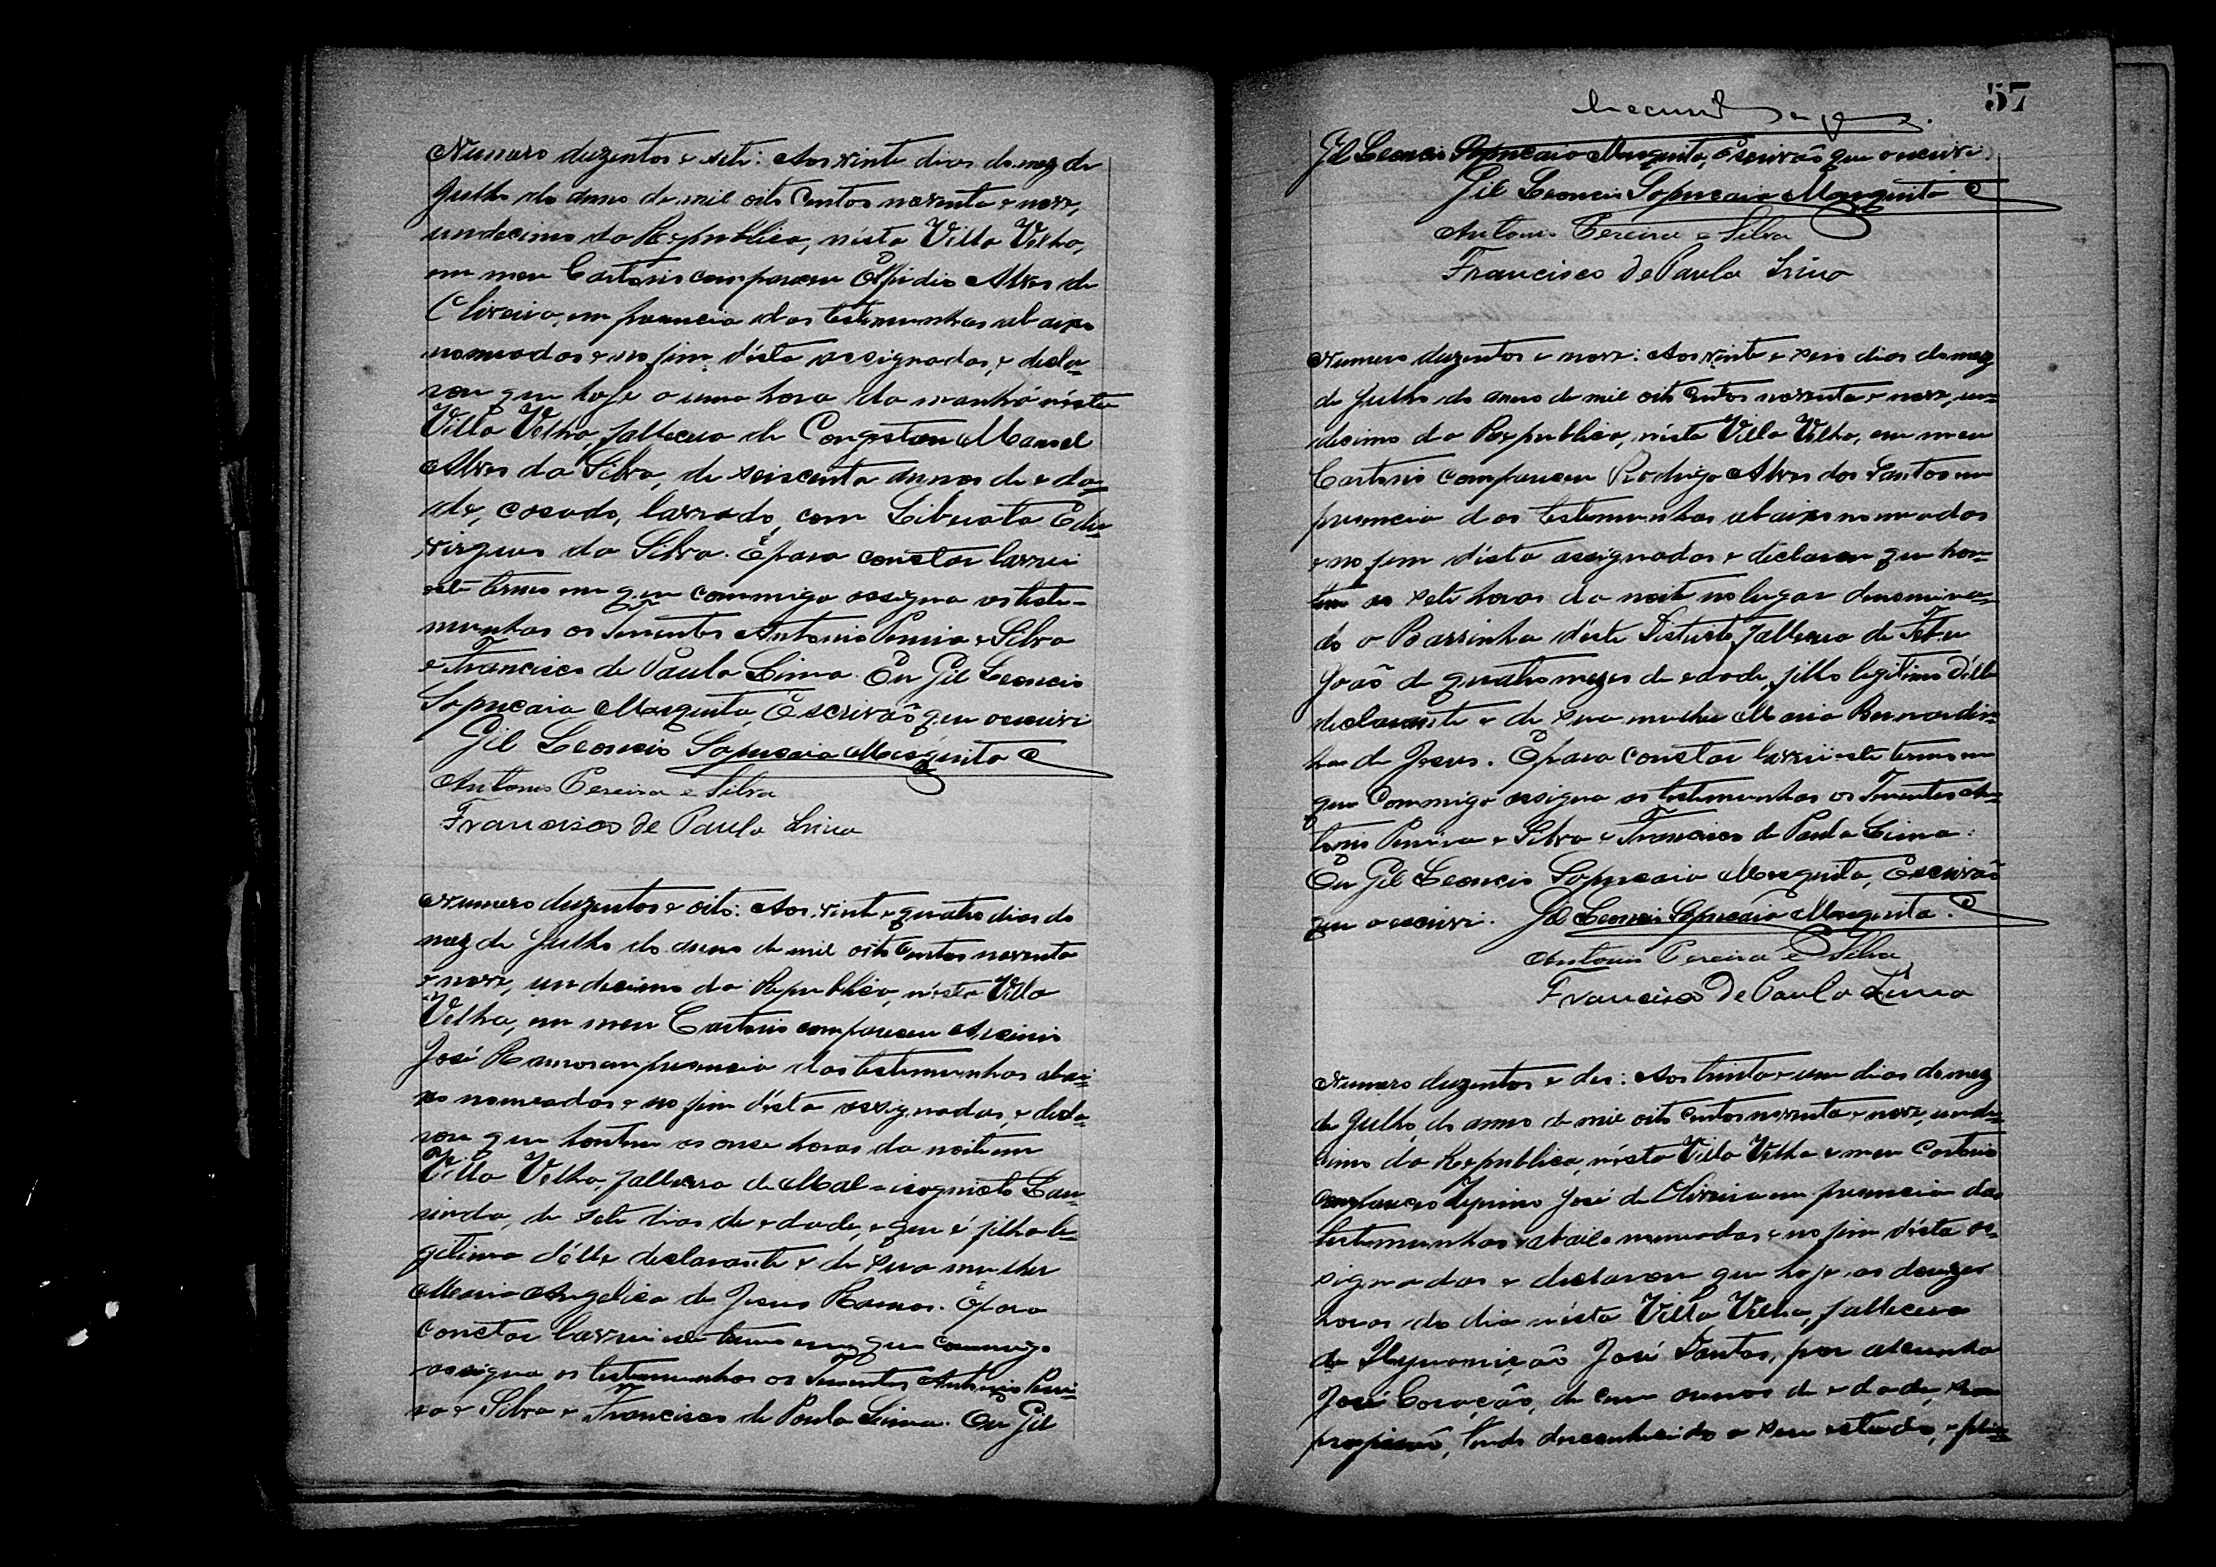 Numero duzentos e sete: Aos vinte dias do mez de
Julho do anno de mil oito centos noventa e nove,
undecimo da Republica, nésta Villa Velha,
em meu Cartorio compareceu Elpidio Alves de
Oliveira, em presencia das testemunhas abaixo
nomeadas e no fim désta assignadas, e decla-
rou que hoje a uma hora da manhã nésta
Villa Velha, fallecera de Congestam Manoel
Alves da Silva, de seiscenta annos de eda-
de, casado, lavrado, com Liberata Edu-
virgens da Silva. E para constar lavrei
este termo em que commigo assigna as teste-
munhas os Tenentes Antonio Pereira e Silva
e Francisco de Paula Lima. Eu Gil Leoncio
Sapucaia Mesquita, Escrivão que o escrivi
Gil Leoncio Sapucaia Mesquita
Antonio Pereira e Silva
Francisco de Paula Lima
Numero duzentos e oito: Aos vinte e quatro dias do
mez de Julho do anno de mil oito centos noventa
e nove, undecimo da Republica, nésta Villa
Velha, em meu Cartorio compareceu Arsenio
José Ramos em presencia das testemunhas abai-
xo nomeadas e no fim désta assignadas, e decla-
rou que hontem as onse horas da noite em
Villa Velha, fallecera de Mal = incognito Lau-
rinda, de sete dias de edade, e que é filha le-
gitima délle declarante e de sua mulher
Maria Angelica de Jesus Ramos. E para
constar lavrei este termo em que commigo
assigna as testemunhas os Tenentes Antonio Perei-
ra e Silva e Francisco de Paula Lima. Eu Gil
57
Gil Leoncio Sapucaia Mesquita, Escrivão que o escrivi.
Gil Leoncio Sapucaia Mesquita
Antonio Pereira e Silva
Francisco de Paula Lima
Numero duzentos e nove: Aos vinte e seis dias do mez
de Julho do anno de mil oito centos noventa e nove, un-
decimo da Republica, nésta Villa Velha, em meu
Cartorio compareceu Rodrigo Alves dos Santos em
presencia das testemunhas abaixo nomeadas
e no fim désta assignadas e declarou que hon-
tem as sete horas da noite no lugar denomina-
do o Barrinha déste Districto, fallecera de Febre
João de quatro mezes de edade, filho legitimo délle
declarante e de sua mulher Maria Bernardin-
ha de Jesus. E para constar lavrei este termo em
que commigo assigna as testemunhas os Tenentes An-
tonio Pereira e Silva e Francisco de Paula Lima.
Eu Gil Leoncio Sapucaia Mesquita, Escrivão
que o escrivi. Gil Leoncio Sapucaia Mesquita.
Antonio Pereira e Silva
Francisco de Paula Lima
Numero duzentos e des: Aos trinta e um dias do mez
de Julho do anno de mil oito centos noventa e nove, unde-
cimo da Republica, nésta Villa Velha e meu Cartorio
compareceo José de Oliveira em presencia das
testemunhas abaixo nomeadas e no fim désta as-
signadas e declarou que hoje as
horas do dia nésta Villa Velha, fallecera
de José Santos, por alcunha
José Coração, de cem annos de edade, sem
profissão, sendo desconhecido o seu estado, e